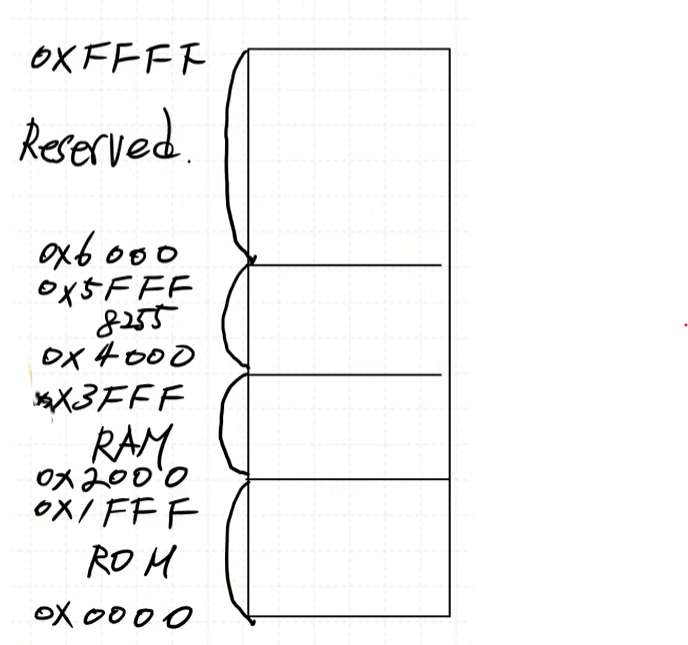 0XFFFF
Reserved.
0X6000
0X5FFF
8255
0X4000
0X3FFF
RAM
0X2000
0X1FFF
ROM
0X0000